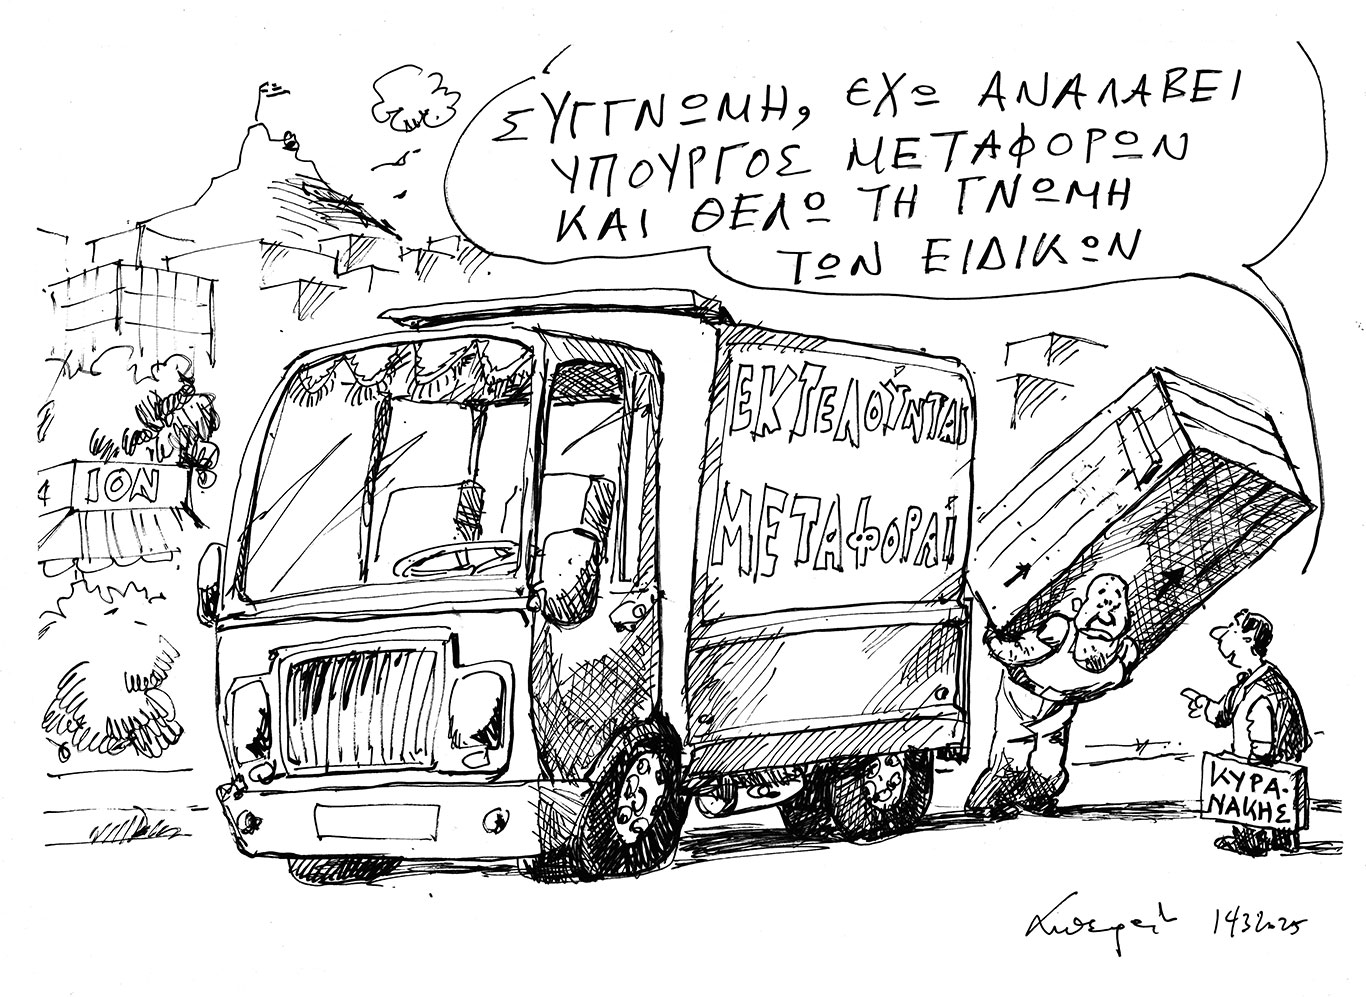 ΣΥΓΓΝΩΜΗ, ΕΧΩ ΑΝΑΛΑΒΕΙ
ΥΠΟΥΡΓΟΣ ΜΕΤΑΦΟΡΩΝ
ΚΑΙ ΘΕΛΩ ΤΗ ΓΝΩΜΗ
ΤΩΝ ΕΙΔΙΚΩΝ
ΕΚΤΕΛΟΎΝΤΑΙ
ΜΕΤΑΦΟΡΑΙ
ΙΟΝ
ΚΥΡΑ-
ΝΑΚΗΣ
1432025